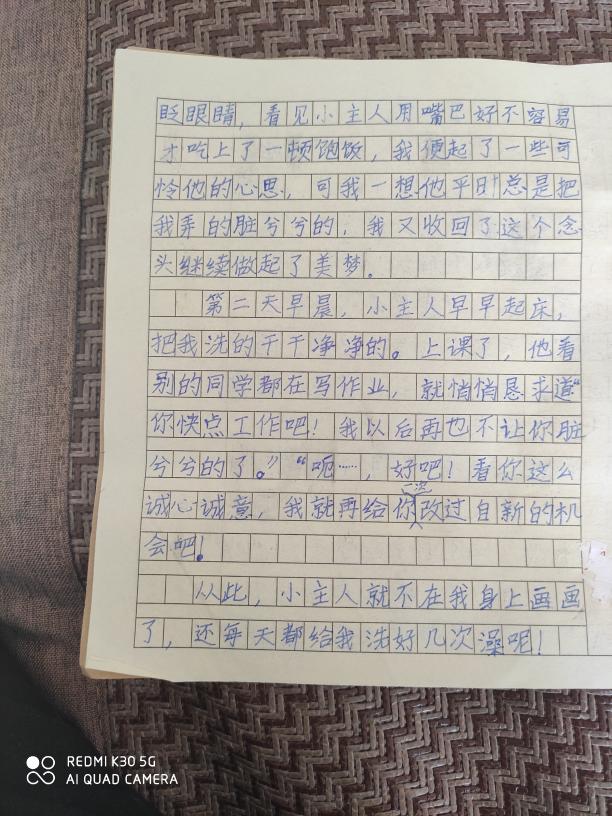 眨眼睛，看见小主人用嘴巴好不容易
才吃上了一顿饱饭，我便起了一些可
怜他的心思，可我一想他平日总是把
我弄的脏兮兮的，我又收回了这个念
头继续做起了美梦。
第二天早晨，小主人早早起床，
把我洗的干干净净的。上课了，他看
别的同学都在写作业，就悄悄恳求道“
你快点工作吧！我以后再也不让你脏
兮兮的了。”“呃……，好吧！看你这么
诚心诚意，我就再给你一次改过自新的机
会吧！
从此，小主人就不在我身上画画
了，还每天都给我洗好几次澡呢！
REDMI K30 5G
AI QUAD CAMERA